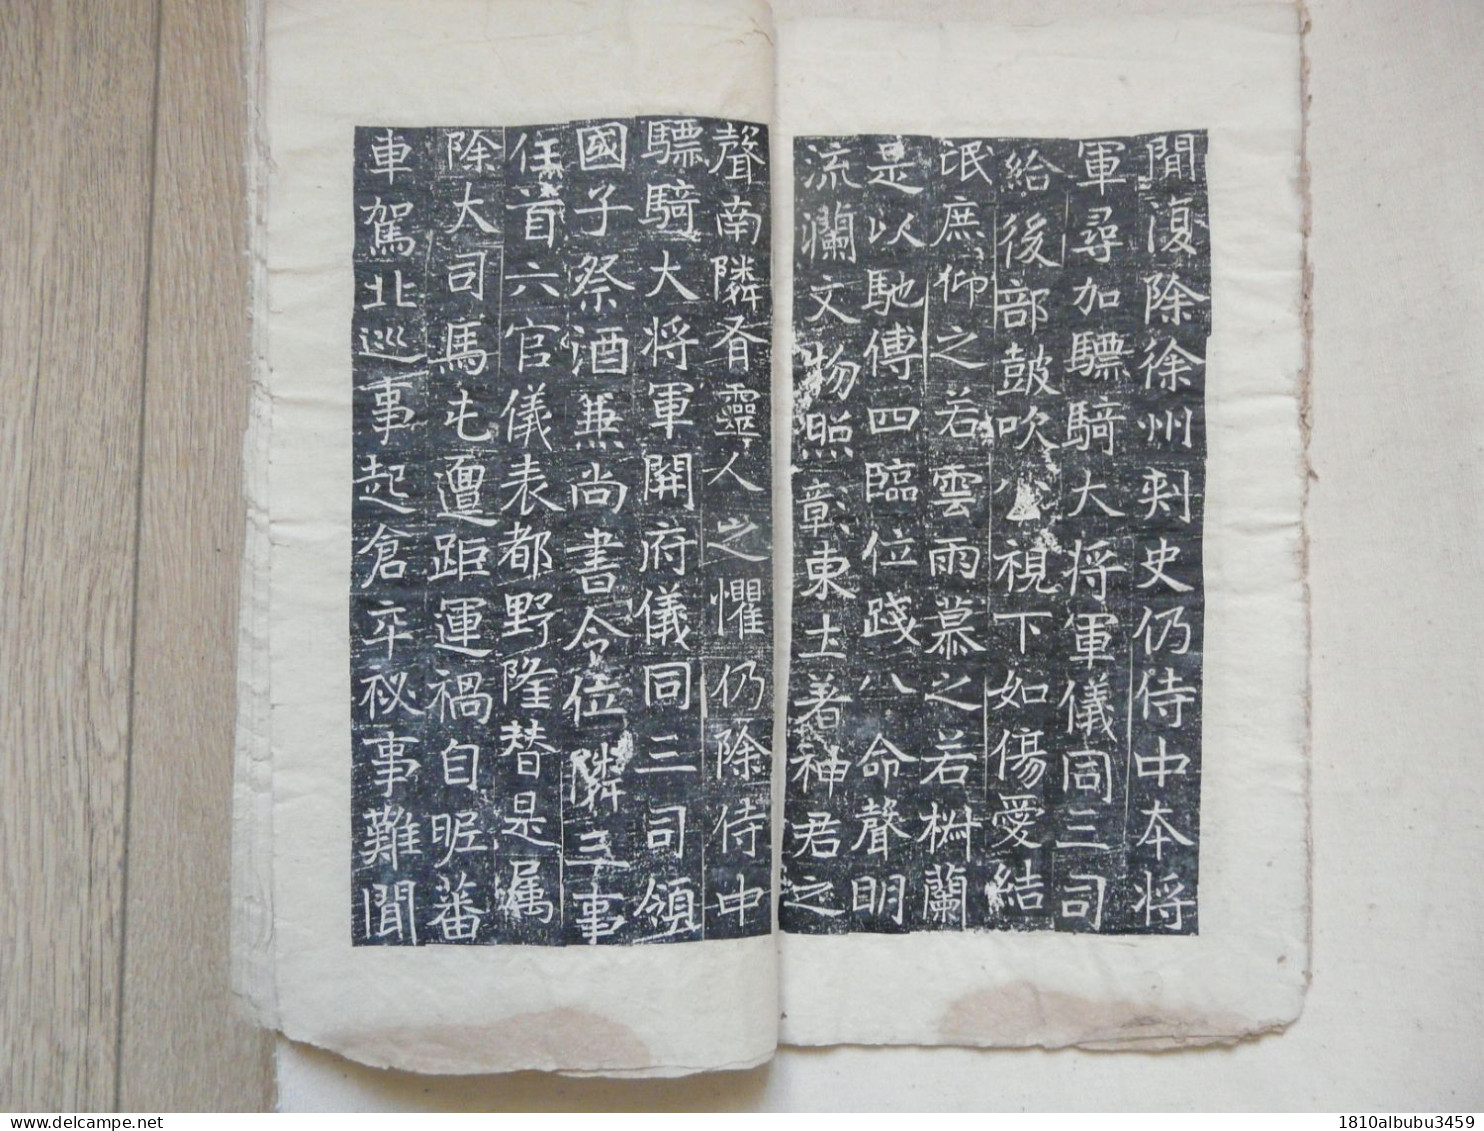 閒復除徐州刺史仍侍中本將
軍尋加驃騎大將軍儀同三司
給後部鼓吹公視下如傷愛結
氓庶仰之若雲雨慕之若樹蘭
是以馳傳四臨位踐八命聲明
流瀾文物照彰東土著神君之
聲南隣肴靈人之懼仍除侍中
驃騎大將軍開府儀同三司領
國子祭酒兼尚書令位隣三事
任首六官儀表都野隆替是属
除大司馬屯邅距運禍自昵蕃
車駕北巡事起倉卒秘事難聞
delcampe.net
1810albubu3459